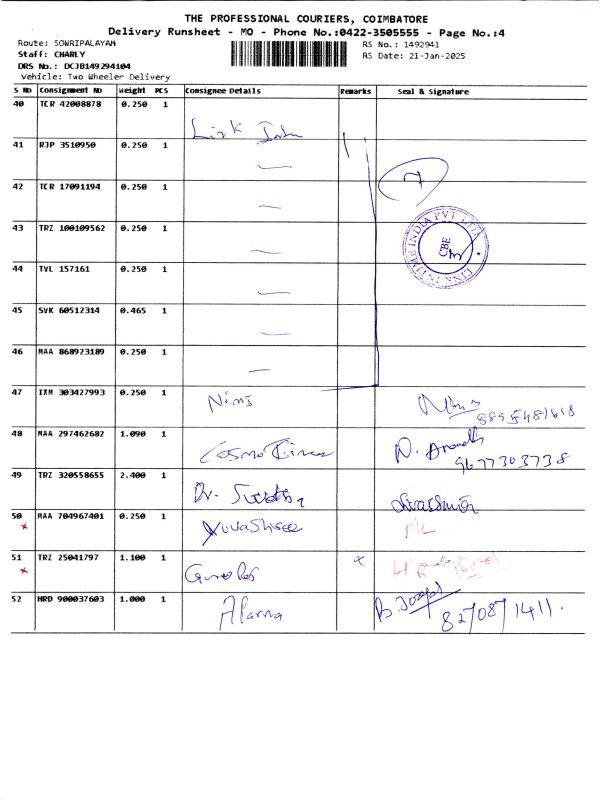 THE PROFESSIONAL COURIERS, COIMBATORE
Delivery Runsheet - MO - Phone No.:0422-3505555 - Page No.:4
Route: SOWRIPALAYAM
RS No.: 1492941
Staff: CHARLY
RS Date: 21-Jan-2025
DRS No.: DCJB149294104
Vehicle: Two Wheeler Delivery
S No Consignment No Weight PCS Consignee Details Remarks Seal & Signature
40 TCR 42008878 0.250 1 Link
41 RJP 3510950 0.250 1
42 TCR 17091194 0.250 1 7
43 TRZ 100109562 0.250 1
LINK INTIME INDIA PVT LTD
CBE
44 TVL 157161 0.250 1
45 SVK 60512314 0.465 1
46 MAA 868923189 0.250 1
47 IXM 303427993 0.250 1
48 MAA 297462682 1.090 1 N. Anandh
9677303738
49 TRZ 320558655 2.400 1 Dr.
50 MAA 704967401 0.250 1
51 TRZ 25041797 1.100 1 x
52 HRD 900037603 1.000 1 B. Joseph
8270871411.